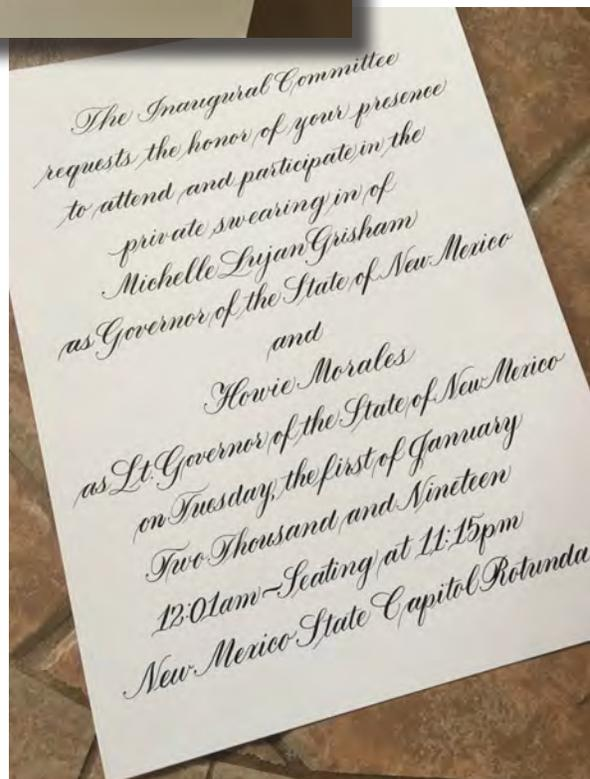 The Inaugural Committee
requests the honor of your presence
to attend and participate in the
private swearing in of
Michelle Lujan Grisham
as Governor of the State of New Mexico
and
Howie Morales
as Lt. Governor of the State of New Mexico
on Tuesday, the first of January
Two Thousand and Nineteen
12:01am~Seating at 11:15pm
New Mexico State Capitol Rotunda